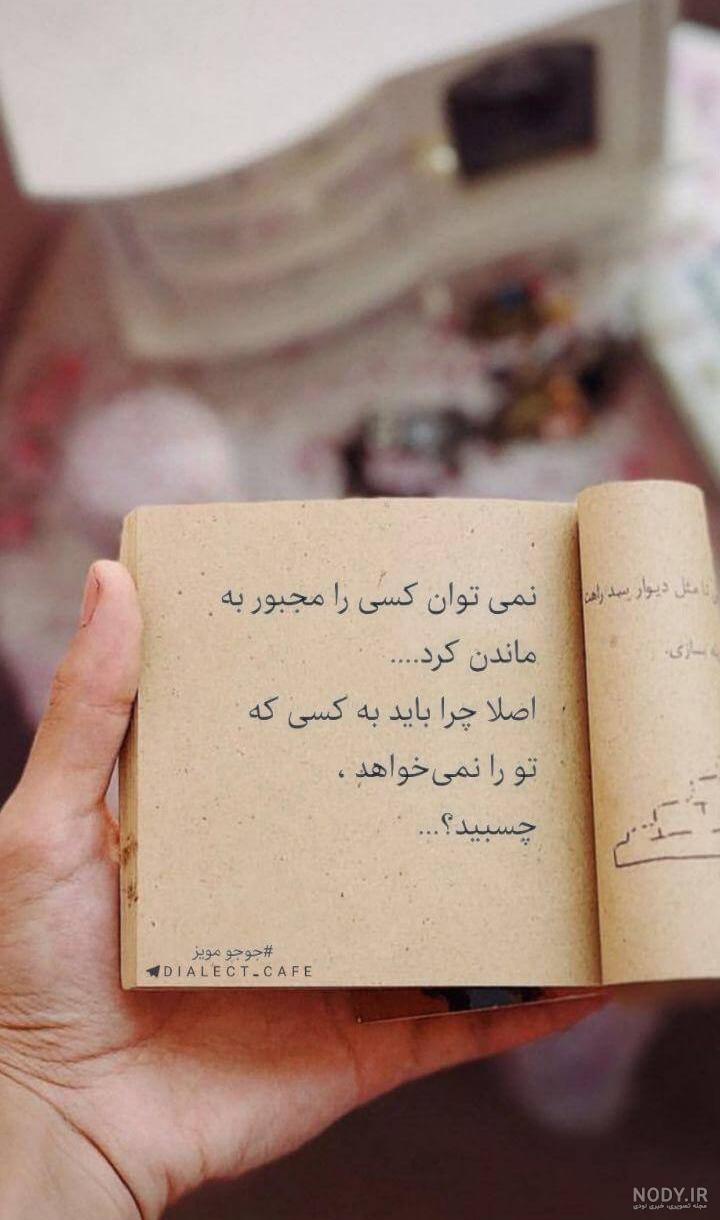 نمی توان کسی را مجبور به
ماندن کرد....
اصلا چرا باید به کسی که
تو را نمی‌خواهد ،
چسبید؟...
#جوجو مویز
DIALECT_CAFE
تا مثل دیوار سد راهت
بسازی.
NODY.IR
مجله تصویری، خبری نودی